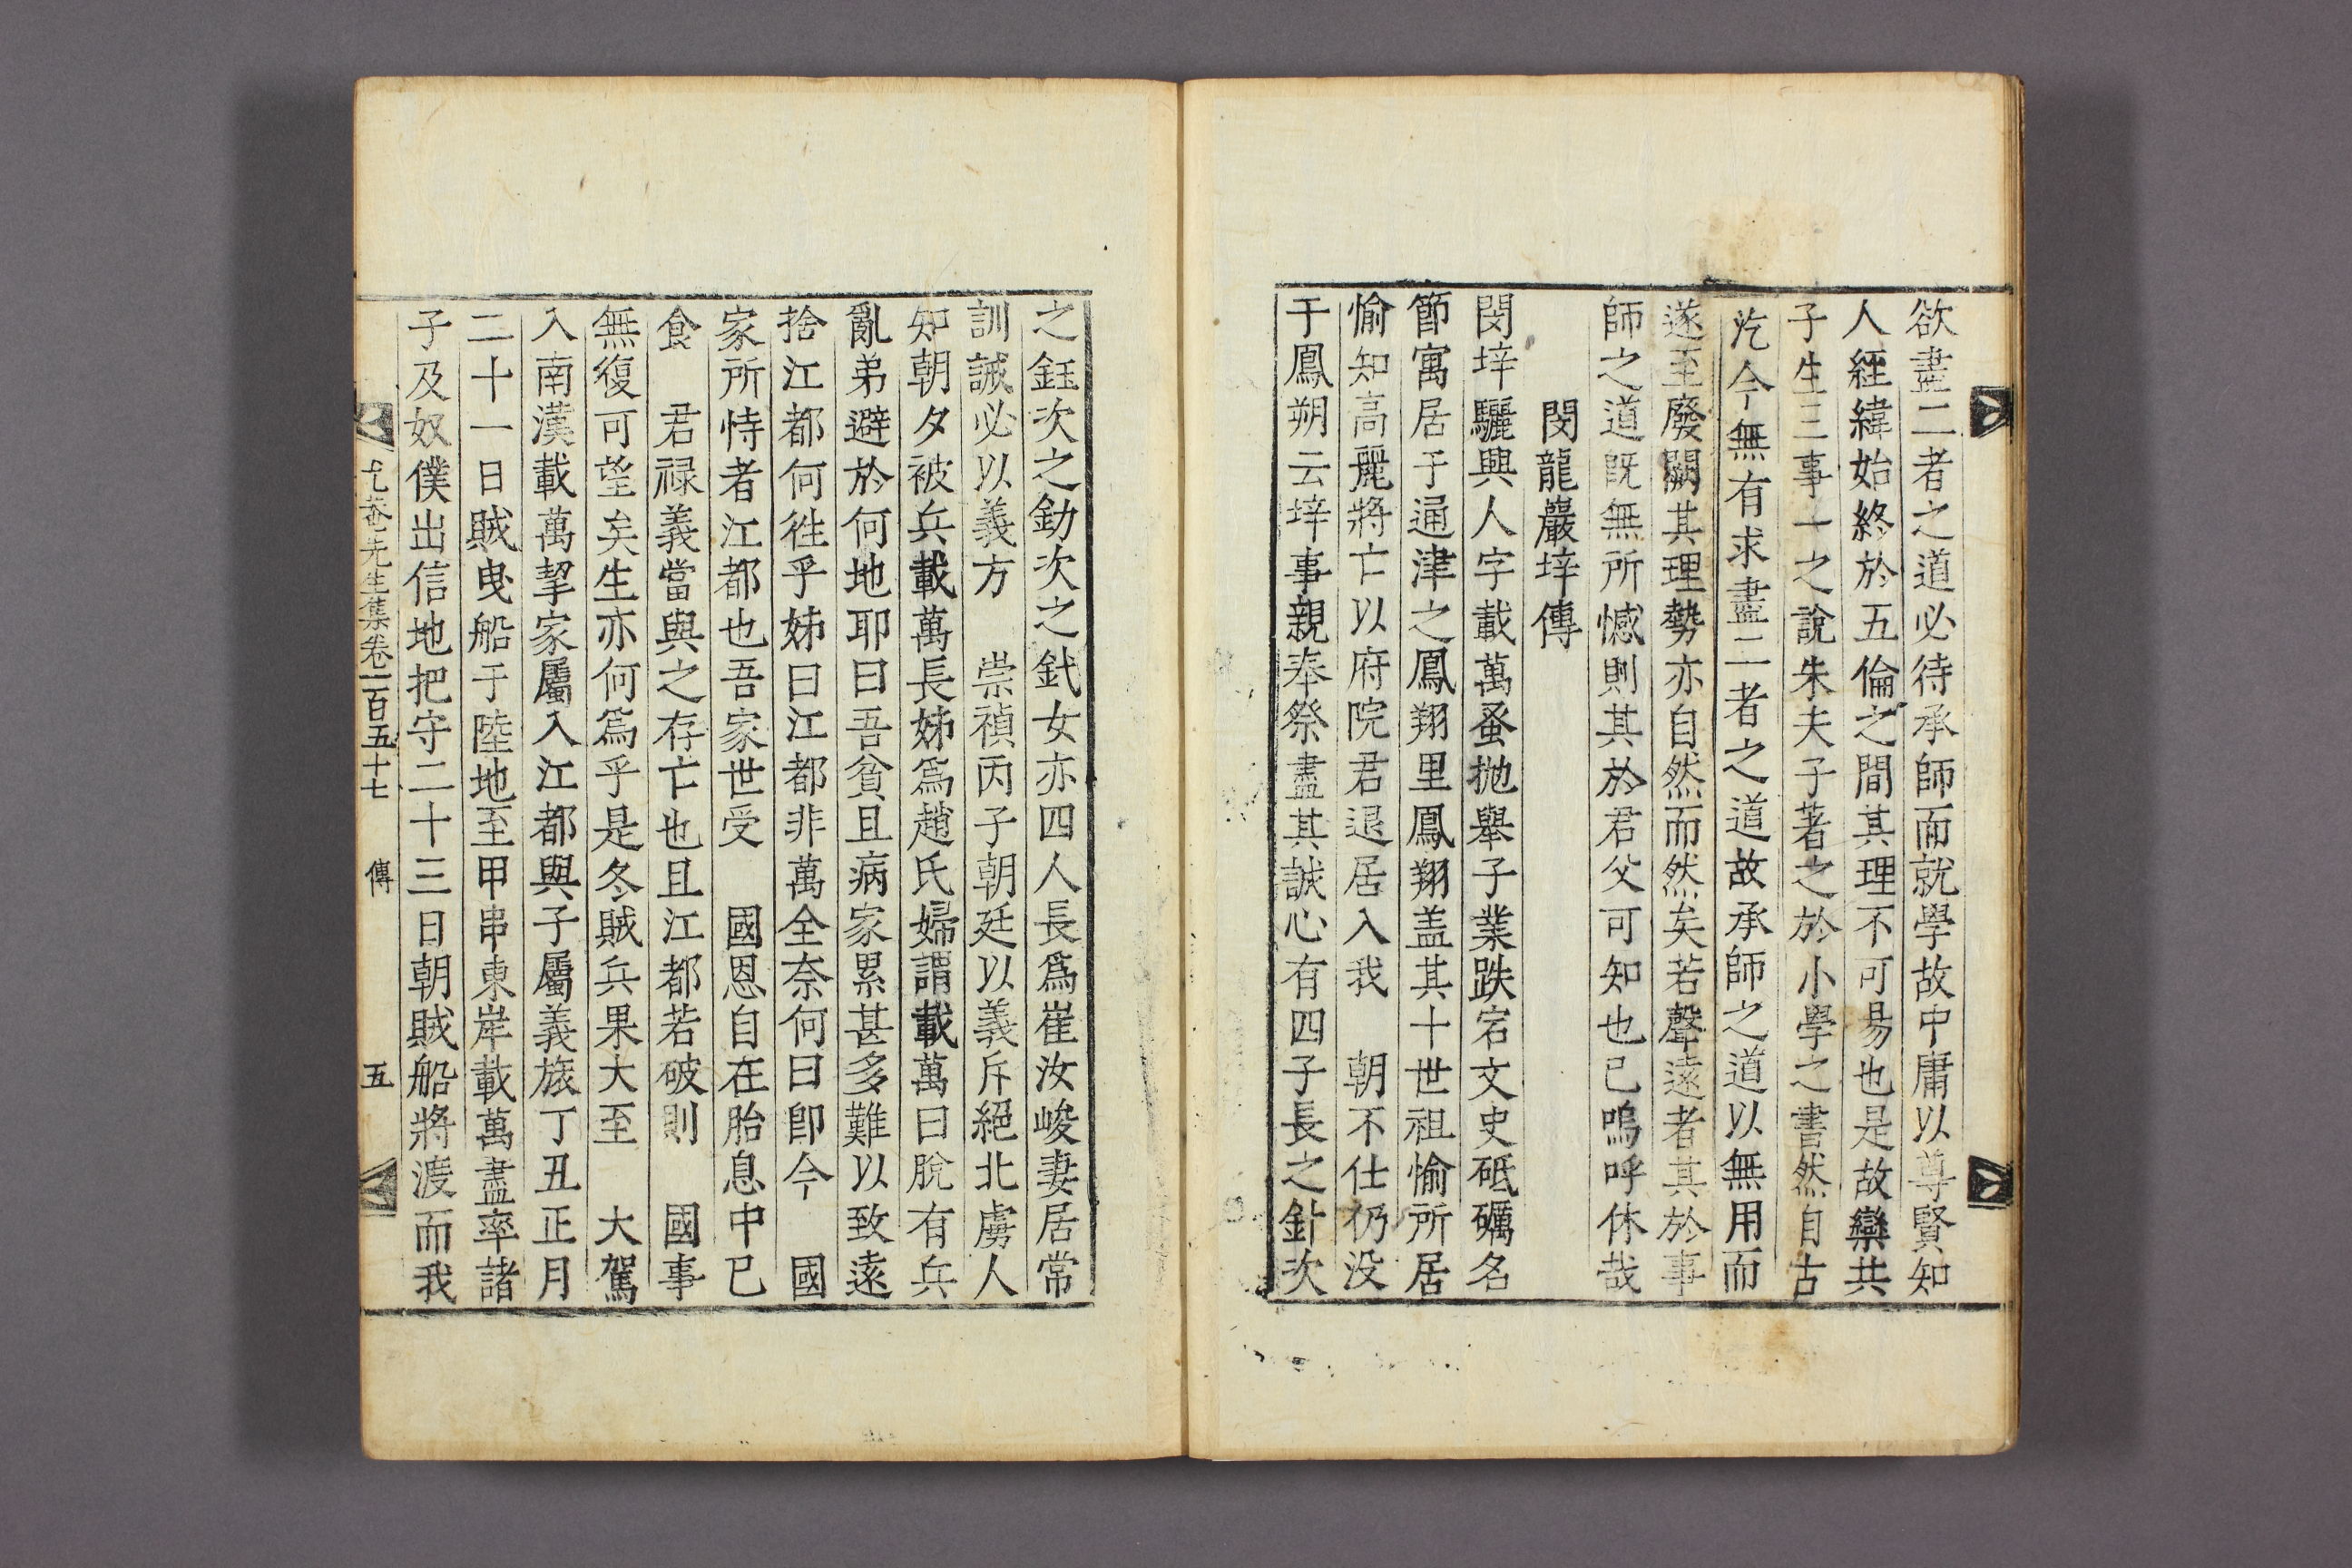 欲盡二者之道必待承師而就學故中庸以尊賢知
人經緯始終於五倫之間其理不可易也是故欒共
子生三事一之說朱夫子著之於小學之書然自古
汔今無有求盡二者之道故承師之道以無用而
遂至廢闕其理勢亦自然而然矣若聲遠者其於事
師之道旣無所憾則其於君父可知也已嗚呼休哉
閔龍巖垶傳
閔垶驪興人字載萬蚤抛擧子業跌宕文史砥礪名
節寓居于通津之鳳翔里鳳翔盖其十世祖愉所居
愉知高麗將亡以府院君退居入我 朝不仕仍没
于鳳朔云垶事親奉祭盡其誠心有四子長之釙次
之鈺次之釛次之釴女亦四人長爲崔汝峻妻居常
訓誡必以義方 崇禎丙子朝廷以義斥絕北虜人
知朝夕被兵載萬長姊爲趙氏婦謂載萬曰脫有兵
亂弟避於何地耶曰吾貧且病家累甚多難以致遠
捨江都何徃乎姊曰江都非萬全奈何曰卽今 國
家所恃者江都也吾家世受 國恩自在胎息中已
食 君禄義當與之存亡也且江都若破則 國事
無復可望矣生亦何爲乎是冬賊兵果大至 大駕
入南漢載萬挈家屬入江都與子屬義旅丁丑正月
二十一日賊曳船于陸地至甲串東岸載萬盡率諸
子及奴僕出信地把守二十三日朝賊船將渡而我
先生集卷一百五十七 傳 五